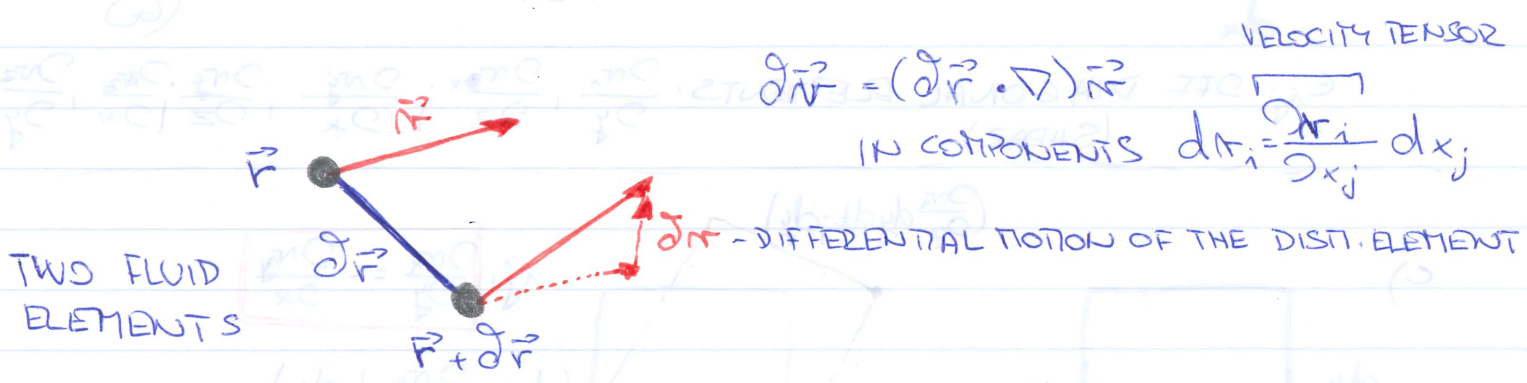 VELOCITY TENSOR
∂v⃗ = (∂r⃗ · ∇)v⃗
IN COMPONENTS dv_i = ∂v_i/∂x_j dx_j
v⃗
r⃗
∂v - DIFFERENTIAL MOTION OF THE DISTM. ELEMENT
∂r⃗
TWO FLUID
ELEMENTS
r⃗ + ∂r⃗